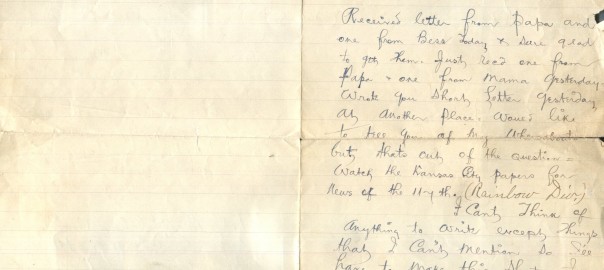 Received letter from Papa and
one from Bess today & sure glad
to get them. Just rec'd one from
Papa & one from Mama yesterday.
Wrote you short letter yesterday
at another place. Would like
to tell you of my whereabouts
but thats out of the question.
Watch the Kansas City papers for
News of the 117th. (Rainbow Div.)
I Cant Think of
Anything to write except Things
that I Can't Mention So I'll
have to make this short I